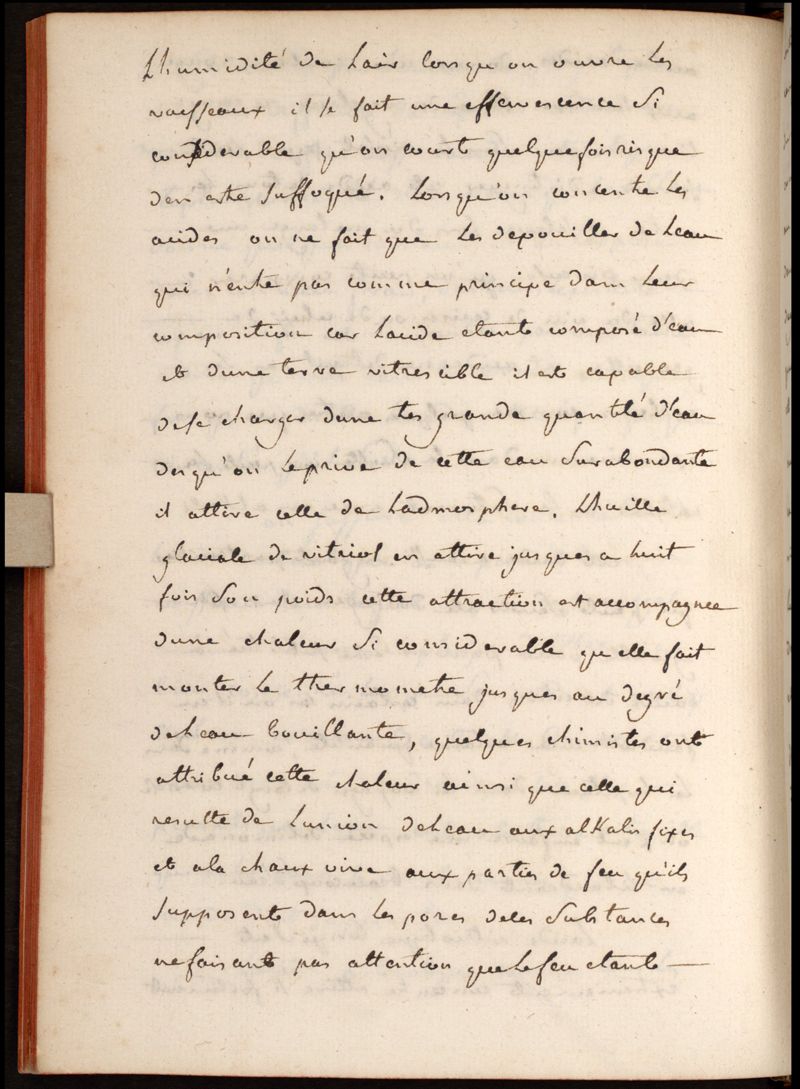 Lhumidité de Lair lorsqu on ouvre Les
vaisseaux il se fait une effervescence Si
considerable qu'on court quelquefois risque
d'en estre Suffoqué. Lorsqu'on concentre Les
acides on ne fait que Les depouiller de Leau
qui n'entre pas comme principe dans Leur
composition car Lacide etant composé d'eau
et dune terre vitrescible il est capable
de se charger dune tes grande quantité d'eau
des qu'on Le prive de cette eau Surabondante
il attire celle de Ladmosphere. Lhuille
glaciale de vitriol en attire jusques a huit
fois Son poids cette attraction est accompagnee
dune chaleur Si considerable quelle fait
monter Le thermometre jusques au degré
de Leau bouillante, quelques chimistes ont
attribué cette chaleur ainsi que celle qui
resulte de Lunion de Leau aux alKalis fixes
et a la chaux vive aux parties de feu qu'ils
Supposent dans Les pores de ces Substances
ne faisant pas attention que Le feu etant —